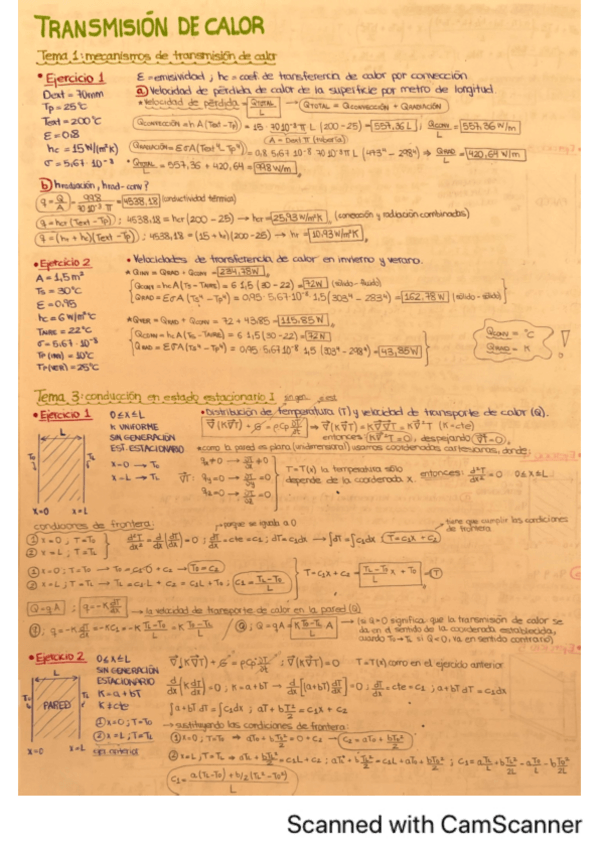 TRANSMISIÓN DE CALOR
Tema 1: mecanismos de transmisión de calor
• Ejercicio 1
Dext = 70mm
Tp = 25°C
Text = 200°C
E = 0.8
hc = 15 W/(m²K)
σ = 5,67·10⁻⁸
E = emisividad ; hc = coef. de transferencia de calor por convección
ⓐ Velocidad de pérdida de calor de la superficie por metro de longitud
* Velocidad de pérdida = QTOTAL/L → QTOTAL = QCONVECCIÓN + QRADIACIÓN
QCONVECCIÓN = h A (Text - Tp) = 15 · 70·10⁻³ π L (200 - 25) = 557,36 L ; Qconv/L = 557,36 W/m
(A = Dext π L (tubería))
QRADIACIÓN = EσA (Text⁴ - Tp⁴) = 0.8 5.67·10⁻⁸ 70·10⁻³ π L (473⁴ - 298⁴) → Qrad/L = 420,64 W/m
* QTOTAL/L = 557,36 + 420,64 = 998 W/m
ⓑ hradiación, hrad-conv?
q = Q/A = 998/70·10⁻³π = 4538.18 (conductividad térmica)
q = hcr (Text - Tp) ; 4538,18 = hcr (200 - 25) → hcr = 25,93 W/m²K (convección y radiación combinadas)
q = (hc + hr)(Text - Tp) ; 4538,18 = (15 + hr)(200 - 25) → hr = 10.93 W/m²K
• Ejercicio 2
A = 1,5 m²
Ts = 30°C
E = 0.95
hc = 6 W/m²°C
TAIRE = 22°C
σ = 5.67·10⁻⁸
Tp (inv) = 10°C
Tp (ver) = 25°C
• Velocidades de transferencia de calor en invierno y verano.
* QINV = QRAD + QCONV = 234,78 W
QCONV = hc A (Ts - TAIRE) = 6 1,5 (30 - 22) = 72 W (sólido - fluido)
QRAD = EσA (Ts⁴ - Tp⁴) = 0.95 · 5.67·10⁻⁸ 1,5 (303⁴ - 283⁴) = 162.78 W (sólido - sólido)
* QVER = QRAD + QCONV = 72 + 43.85 = 115.85 W
QCONV = hc A (Ts - TAIRE) = 6 1,5 (30 - 22) = 72 W
QRAD = EσA (Ts⁴ - Tp⁴) = 0.95 5.67·10⁻⁸ 1,5 (303⁴ - 298⁴) = 43,85 W
QCONV = °C
QRAD = K
Tema 3: conducción en estado estacionario I
• Ejercicio 1
0 ≤ x ≤ L
K UNIFORME
SIN GENERACIÓN
EST. ESTACIONARIO
x=0 → To
x=L → TL
• Distribución de temperatura (T) y velocidad de transporte de calor (Q).
entonces K∇²T = 0, despejando ∇²T = 0.
• como la pared es plana (unidimensional) usamos coordenadas cartesianas, donde:
T = T(x) la temperatura sólo depende de la coordenada x.
entonces: d²T/dx² = 0 0 ≤ x ≤ L
condiciones de frontera:
porque se iguala a 0
tiene que cumplir las condiciones de frontera
① x = 0, T = To
② x = L ; T = TL
d²T/dx² = d/dx (dT/dx) = 0 ; dT/dx = cte = c1 ; dT = c1dx → ∫dT = ∫c1dx T = c1x + c2
① x = 0 ; T = To → To = c1·0 + c2 → To = c2
② x = L ; T = TL → TL = c1·L + c2 = c1L + To ; c1 = TL-To/L
T = c1x + c2 = TL-To/L x + To = T
Q = qA ; q = -K dT/dx → la velocidad de transporte de calor en la pared (Q)
q ; q = -K dT/dx = -KC1 = -K TL-To/L = K To-TL/L
Q ; Q = qA = K To-TL/L A → (si Q>0 significa que la transmisión de calor se da en el sentido de la coordenada establecida, cuando To>TL si Q<0, va en sentido contrario)
• Ejercicio 2
0 ≤ x ≤ L
SIN GENERACIÓN
ESTACIONARIO
K = a + bT
K ≠ cte
① x=0 ; T=To
② x=L ; T=TL
PARED
x=0 x=L
∇(K∇T) = 0 T = T(x) como en el ejercicio anterior
d/dx (K dT/dx) = 0 ; K = a + bT → d/dx [(a+bT) dT/dx] = 0 ; dT/dx = cte = c1 ; a + bT dT = c1dx
∫a + bT dT = ∫c1dx ; aT + bT²/2 = c1x + c2
→ sustituyendo las condiciones de frontera:
① x=0 ; T=To → aTo + bTo²/2 = 0 + c2 → c2 = aTo + bTo²/2
② x=L ; T=TL → aTL + bTL²/2 = c1L + c2 ; aTL + bTL²/2 = c1L + aTo + bTo²/2 ; c1 = aTL/L + bTL²/2L - aTo/L - bTo²/2L
c1 = a(TL-To) + b/2 (TL²-To²)/L
Scanned with CamScanner